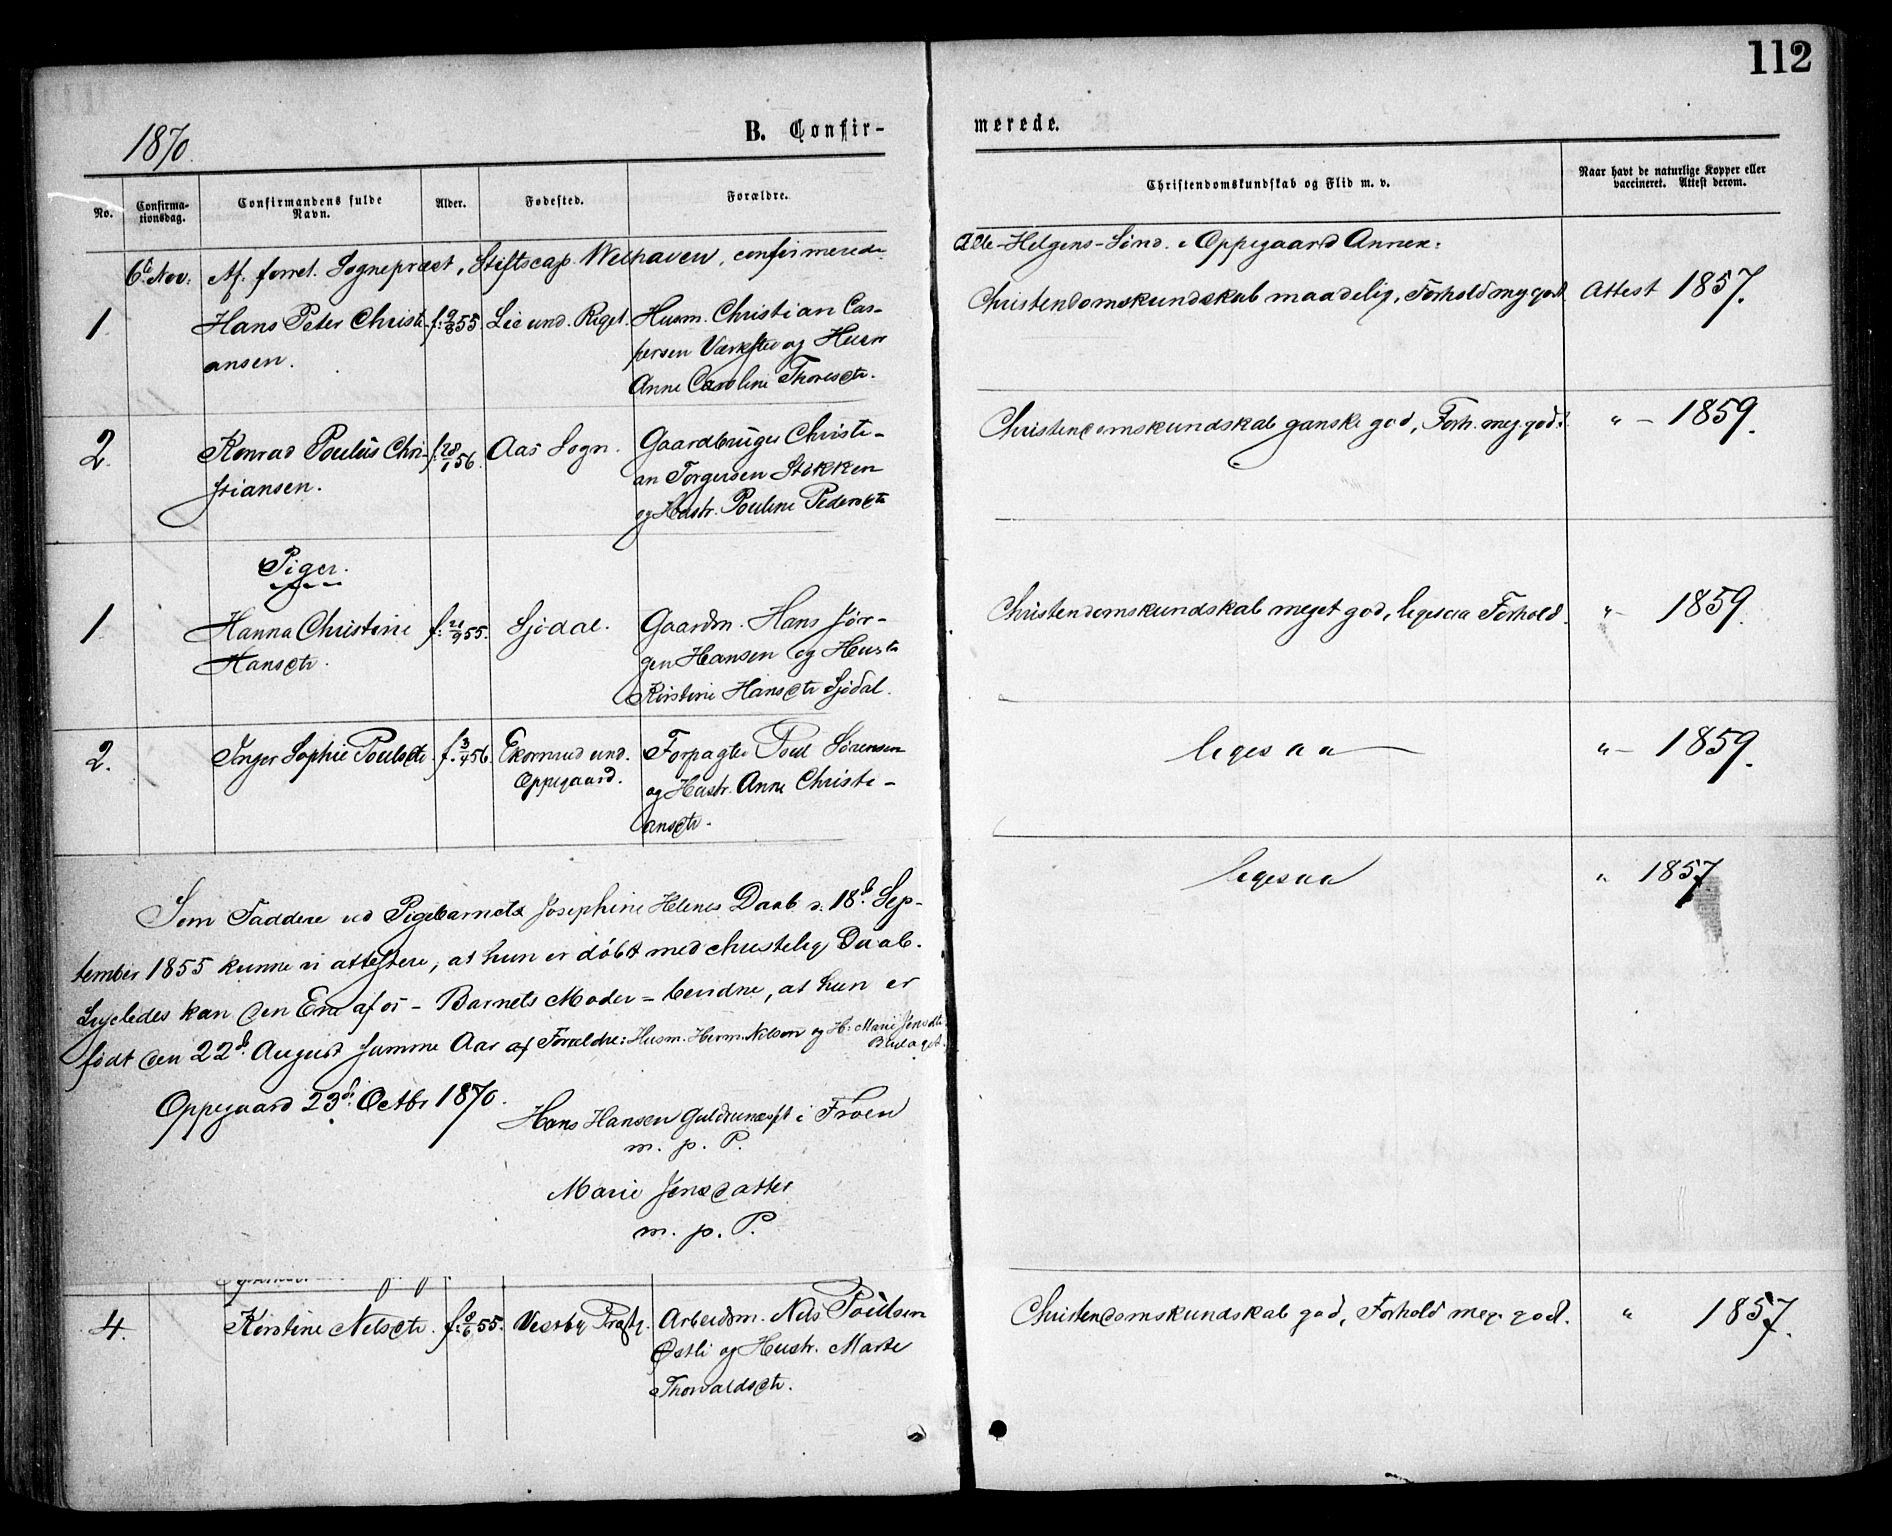 112
1870.
B. Confir-
merede.
No.
Confirma-
tionsdag.
Confirmandens fulde
Navn.
Alder.
Fødested.
Forældre.
Christendomskundskab og Flid m. v.
Naar havt de naturlige Kopper eller
vaccineret. Attest derom.
6te Nov: Af forret. Sognepræst, Stiftscap. Welhaven, confirmerede
Alle-Helgens-Sønd. i Oppegaard Annex:
1. Hans Peter Christi- f: 9/8 55. Lie und. Riget. Husm. Christian Cas-
Christendomskundskab maadelig, Forhold meg. god. Attest 1857.
ansen. persen Værksted og Hustr
Anne Caroline Thoresdtr.
2. Konrad Poulus Chri- f: 28/1 56. Aas Sogn. Gaardbruger Christi-
Christendomskundskab ganske god, Forh. meg. godt. " - 1859.
stiansen. an Torgersen Stokken
og Hustr. Pouline Pedersdtr
Piger.
1. Hanna Christine f: 21/9 55. Sjødal. Gaardm. Hans Jør-
Christendomskundskab meget god, ligesaa Forhold. " - 1859.
Hansdtr. gen Hansen og Hustr
Kirstine Hansdtr Sjødal.
2. Inger Sophie Poulsdtr f. 3/4 56. Ekornrud und. Forpagter Poul Sørensen
ligesaa " - 1859.
Oppegaard. og Hustr. Anne Christi-
ansdtr.
ligesaa " 1857.
Som Faddere ved Pigebarnets Josephine Helenes Daab d. 18d. Sep-
tember 1855 kunne vi attestere, at hun er døbt med christelig Daab.
Ligeledes kan den Ene af os - Barnets Moder - bevidne, at hun er
født den 22d. August samme Aar af Forældre: Husm. Herm. Nilsen og H: Marie Jensdtr
Oppegaard 23d. Octbr 1870.
Hans Hansen i Froen
m. p. P.
Marie Jensdatter
m. p. P.
4. Kirstine Nilsdtr. f: 8/6 55. Vestby Præstg. Arbeidsm. Nils Poulsen
Christendomskundskab god, Forhold meg. god. " 1857.
Østli og Hustr. Marte
Thorvaldsdtr.